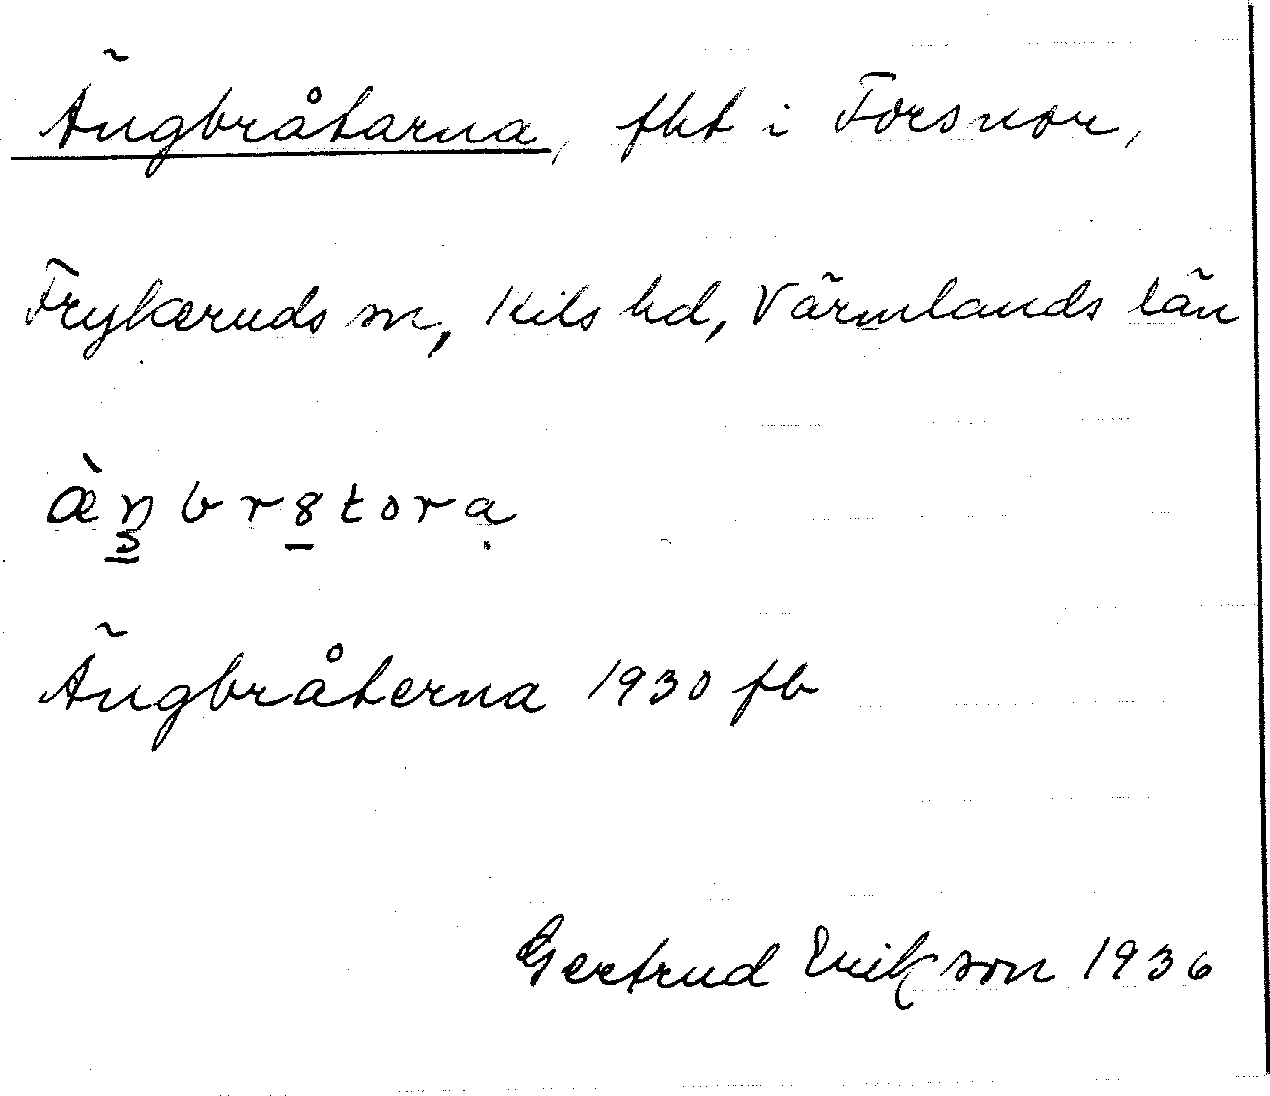 Ängbråtarna, fkt i Forsnor,
Frykeruds sn, Kils hd, Värmlands län
æ̀ŋbr8tora
Ängbråterna 1930 fb
Gertrud Erikson 1936